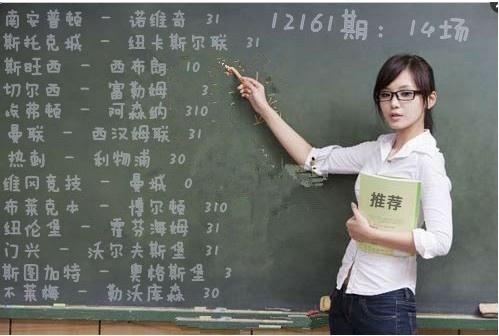 12161期：14场
南安普顿 – 诺维奇 31
斯托克城 – 纽卡斯尔联 31
斯旺西 – 西布朗 10
切尔西 – 富勒姆 3
埃弗顿 – 阿森纳 310
曼联 – 西汉姆联 31
热刺 – 利物浦 30
维冈竞技 – 曼城 0
布莱克本 – 博尔顿 310
纽伦堡 – 霍芬海姆 31
门兴 – 沃尔夫斯堡 31
斯图加特 – 奥格斯堡 3
不莱梅 – 勒沃库森 30
推荐